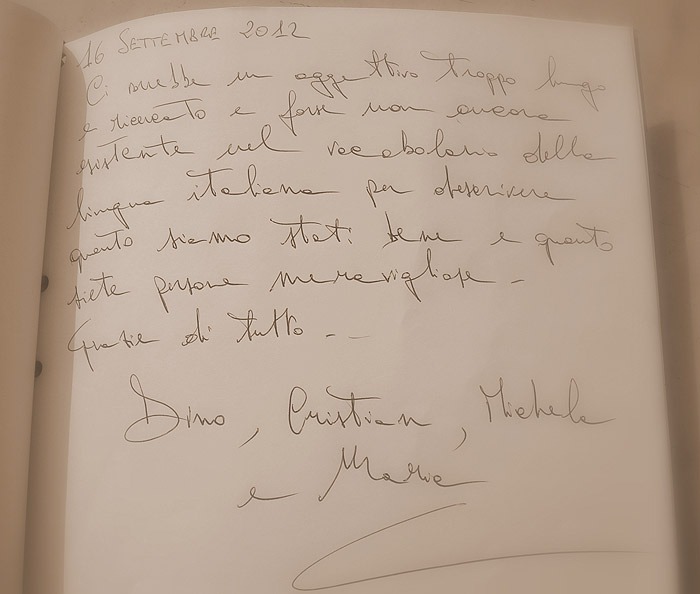 16 SETTEMBRE 2012
Ci sarebbe un aggettivo troppo lungo
e ricercato e forse non ancora
esistente nel vocabolario della
lingua italiana per descrivere
quanto siamo stati bene e quanto
siete persone meravigliose -
Grazie di tutto - -
Dino, Cristian, Michela
e Maria